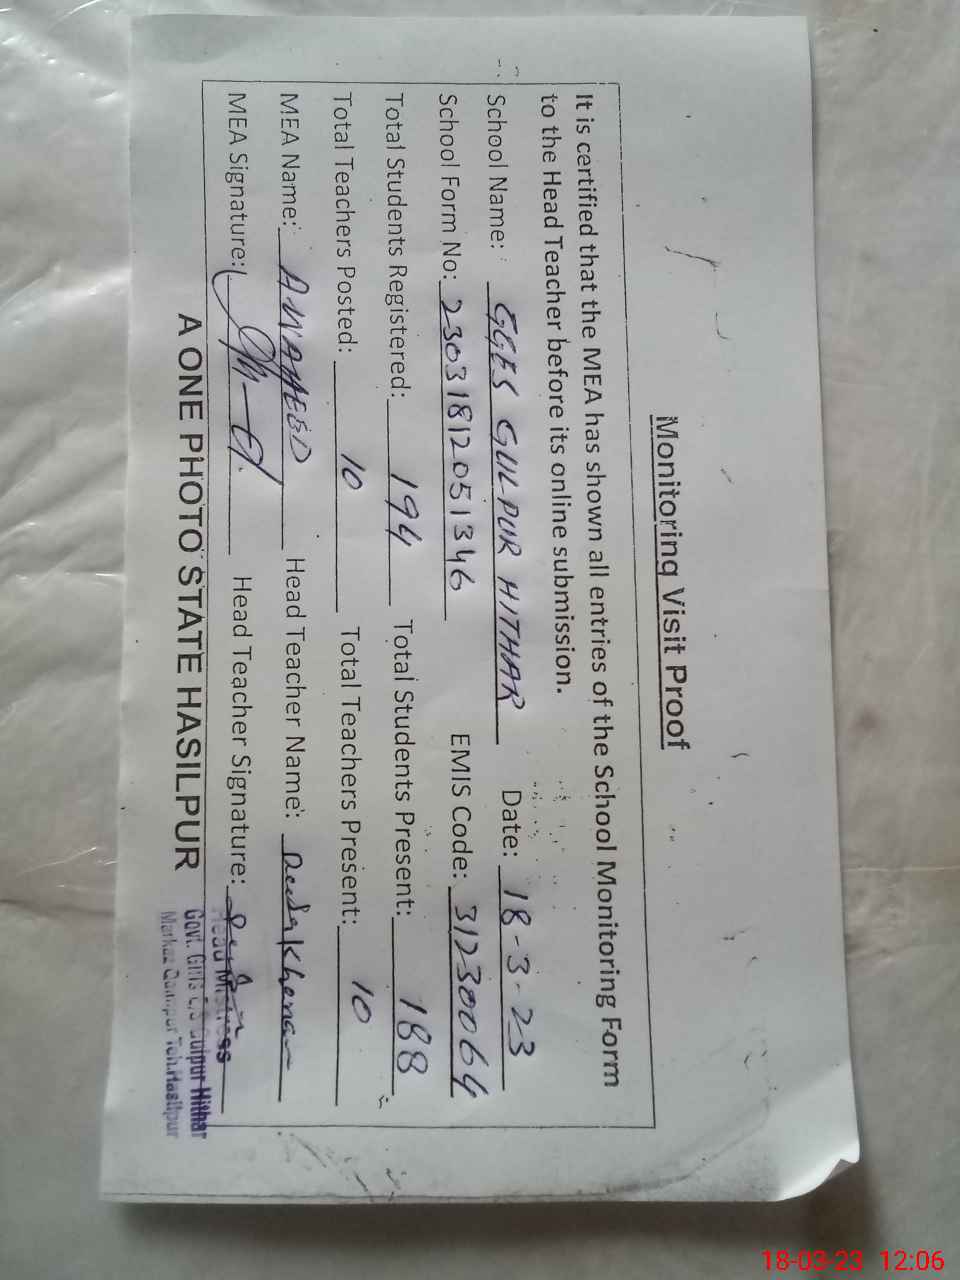 Monitoring Visit Proof
It is certified that the MEA has shown all entries of the School Monitoring Form
to the Head Teacher before its online submission.
School Name: GGES GULPUR HITHAR Date: 18-3-23
School Form No: 2303181205 1346 EMIS Code: 31230064
Total Students Registered: 194 Total Students Present: 188
Total Teachers Posted: 10 Total Teachers Present: 10
MEA Name: A WAHEED Head Teacher Name:
MEA Signature: Head Teacher Signature:
Head Mistress
Govt. Girls E/S Gulpur Hithar
Markaz Qaimpur Teh.Hasilpur
A ONE PHOTO STATE HASILPUR
18-03-23 12:06